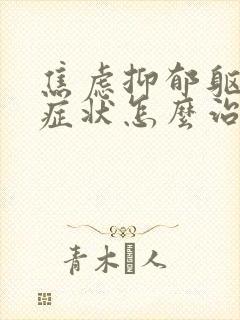 焦虑抑郁躯
症状怎麼治
青木 人